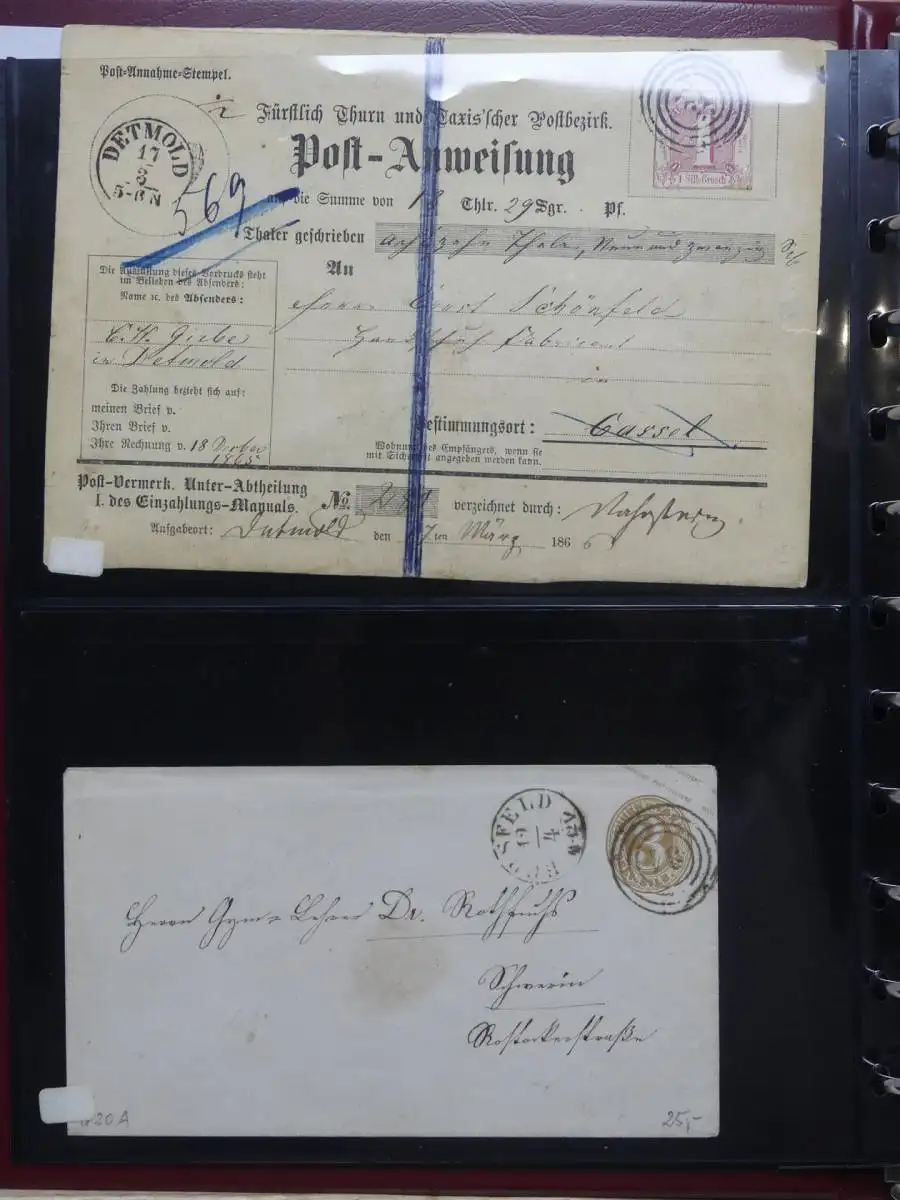 Post-Annahme-Stempel.
DETMOLD
17
3
5-6 N
569
Fürstlich Thurn und Taxis'scher Postbezirk.
Post-Anweisung
auf die Summe von 18 Thlr. 29 Sgr. Pf.
Thaler geschrieben Achtzehn Thaler, Neun und zwanzig
An
Die Ausfüllung dieses Vordrucks steht
im Belieben des Absenders:
Name ꝛc. des Absenders:
in Detmold
Herrn Schönfeld
Handschuh Fabricant
in
Die Zahlung bezieht sich auf:
meinen Brief v.
Ihren Brief v.
Ihre Rechnung v. 18
1865
Bestimmungsort: Cassel
Wohnung des Empfängers, wenn sie
mit Sicherheit angegeben werden kann.
Post-Vermerk. Unter-Abtheilung
I. des Einzahlungs-Manuals.
No. verzeichnet durch:
Aufgabeort: Detmold den 17ten März 186
1 Silb. Grosch.
SFELD
19
4
3
Herrn Gym-Lehrer Dr. Rothfuchs
Schwerin
Rostockerstraße
20 A
25,-